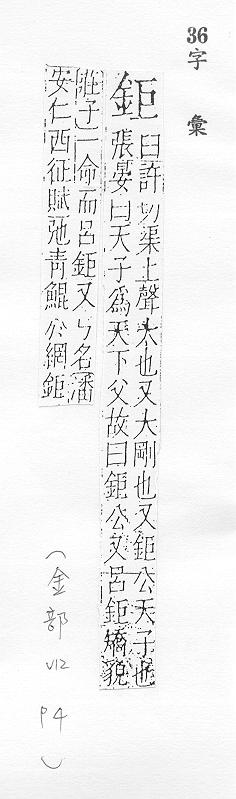 36
字彙
鉅 臼許切渠上聲大也又大剛也又鉅公天子也
張晏曰天子爲天下父故曰鉅公又呂鉅矯貌
莊子一命而呂鉅又ㄣ名潘
安仁西征賦弛青鯤於網鉅
(金部 V12 P4)